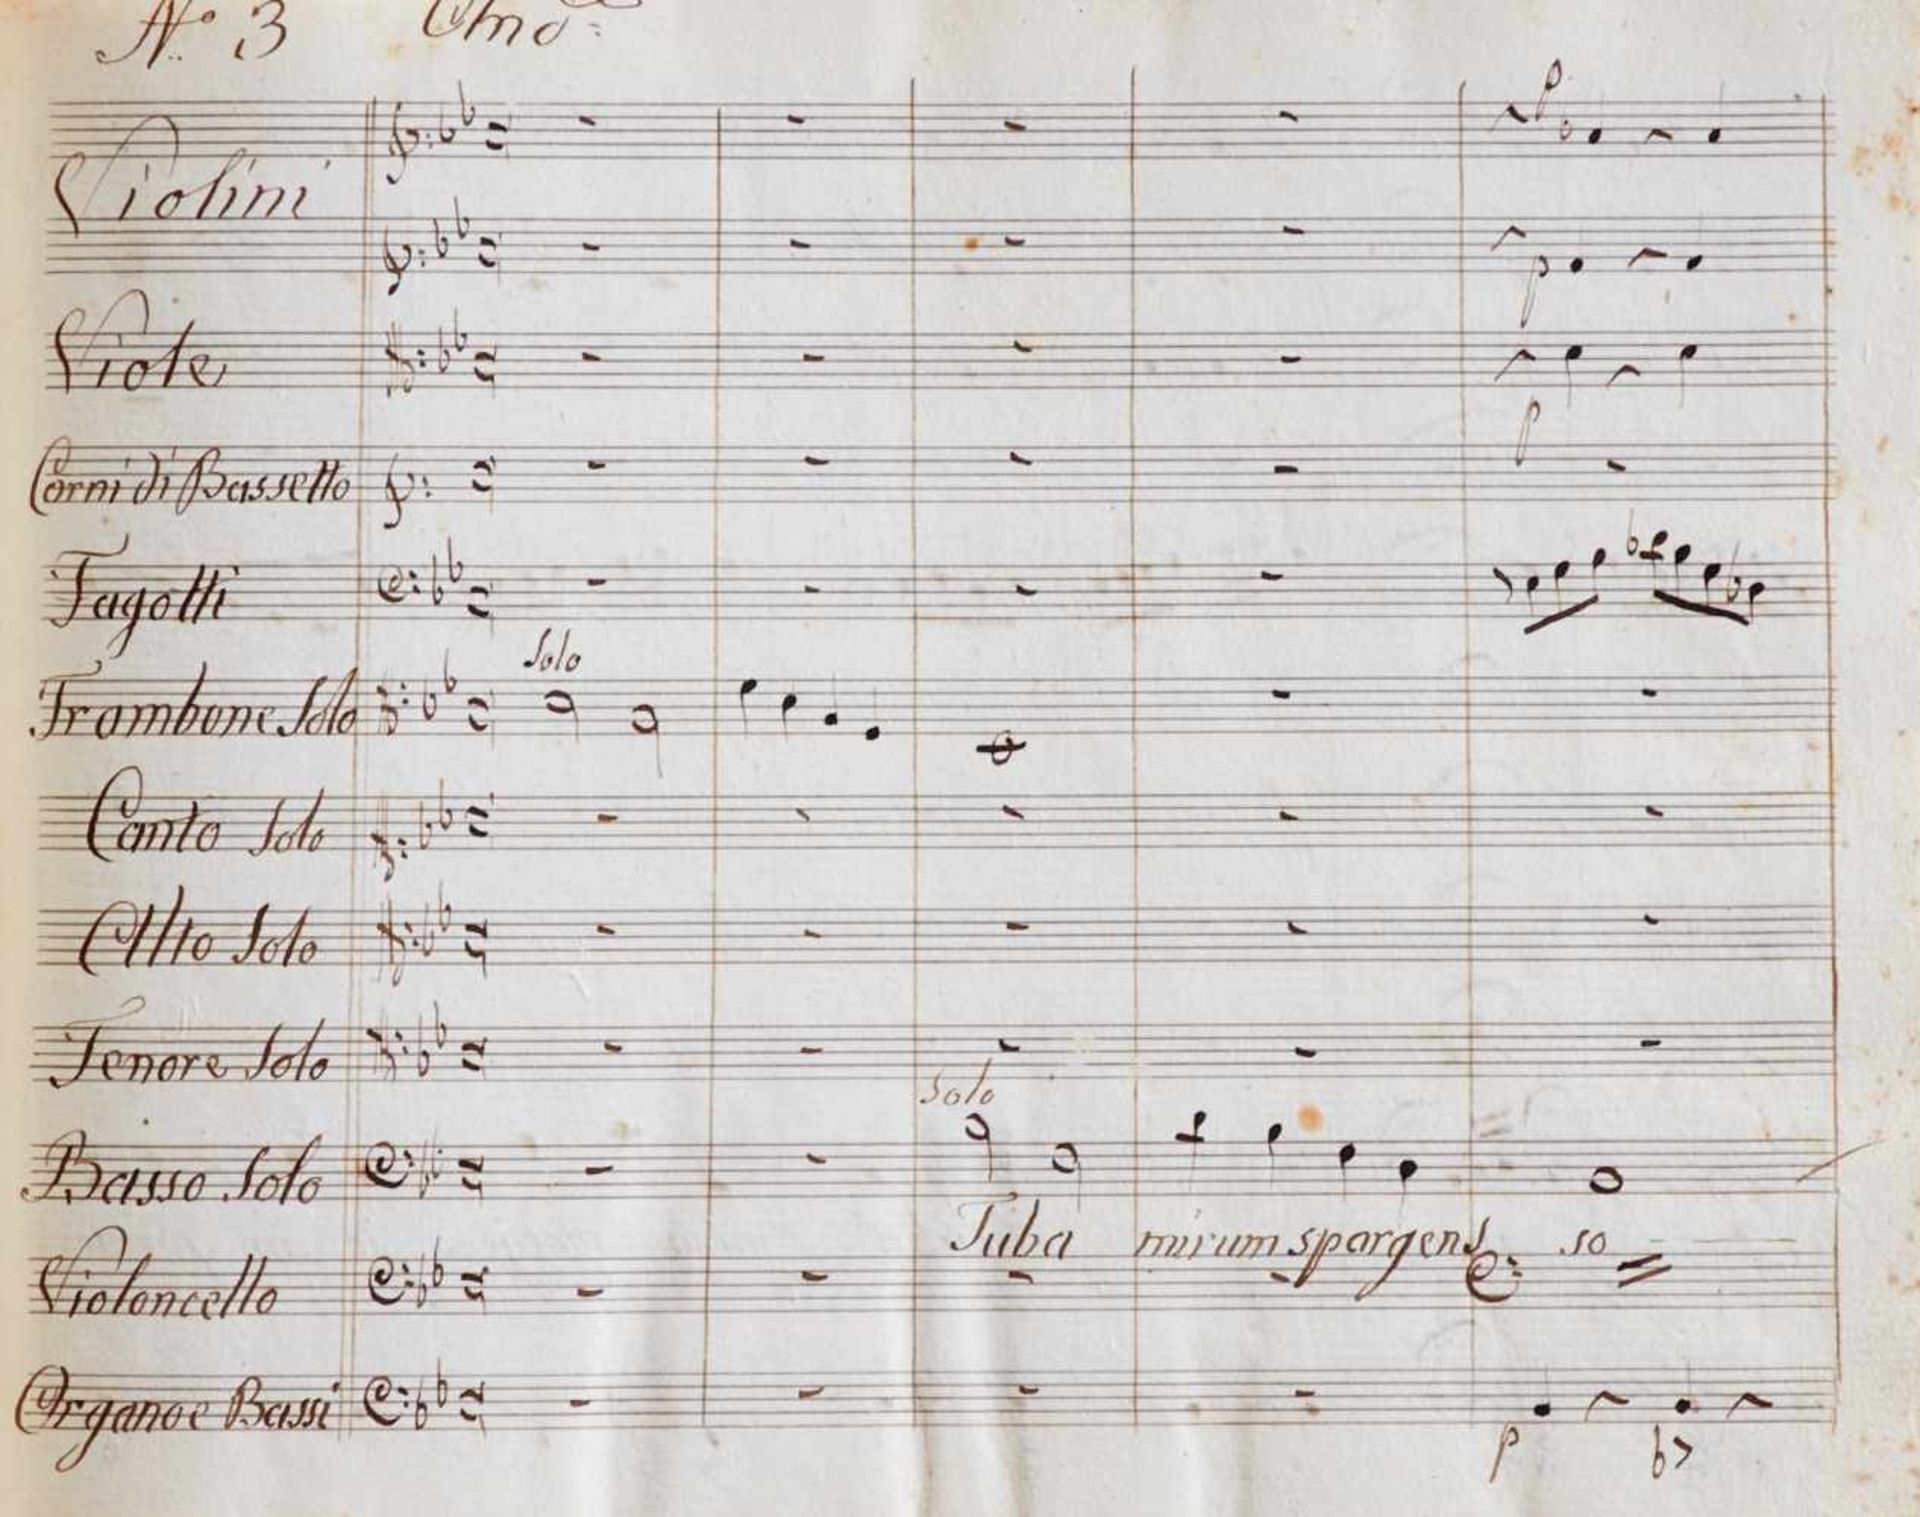 No. 3 And.te
Violini
Viole
Corni di Bassetto
Fagotti
Solo
Trombone Solo
Canto Solo
Alto Solo
Tenore Solo
Solo
Basso Solo
Tuba mirum spargens so
Violoncello
Organo e Bassi
p
p
p
p